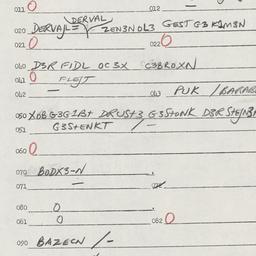 011 O 012
DERVAL
020 DERVAJL= ZEN3NOL3 GEST G3 K1M3N
021 O 022 O
0L0 D3R FIDL OC3X C3BROXN
0L1 O FLEJT
0L2 — 0L3 PUK / BARABA
050 XOB G3G1Bt DRUSt3 G3StONK D3R
051 G3StENKT /—
060 O
070 BODX3-N
071 —
080 O
081 O 082 O
090 BAZECN /-